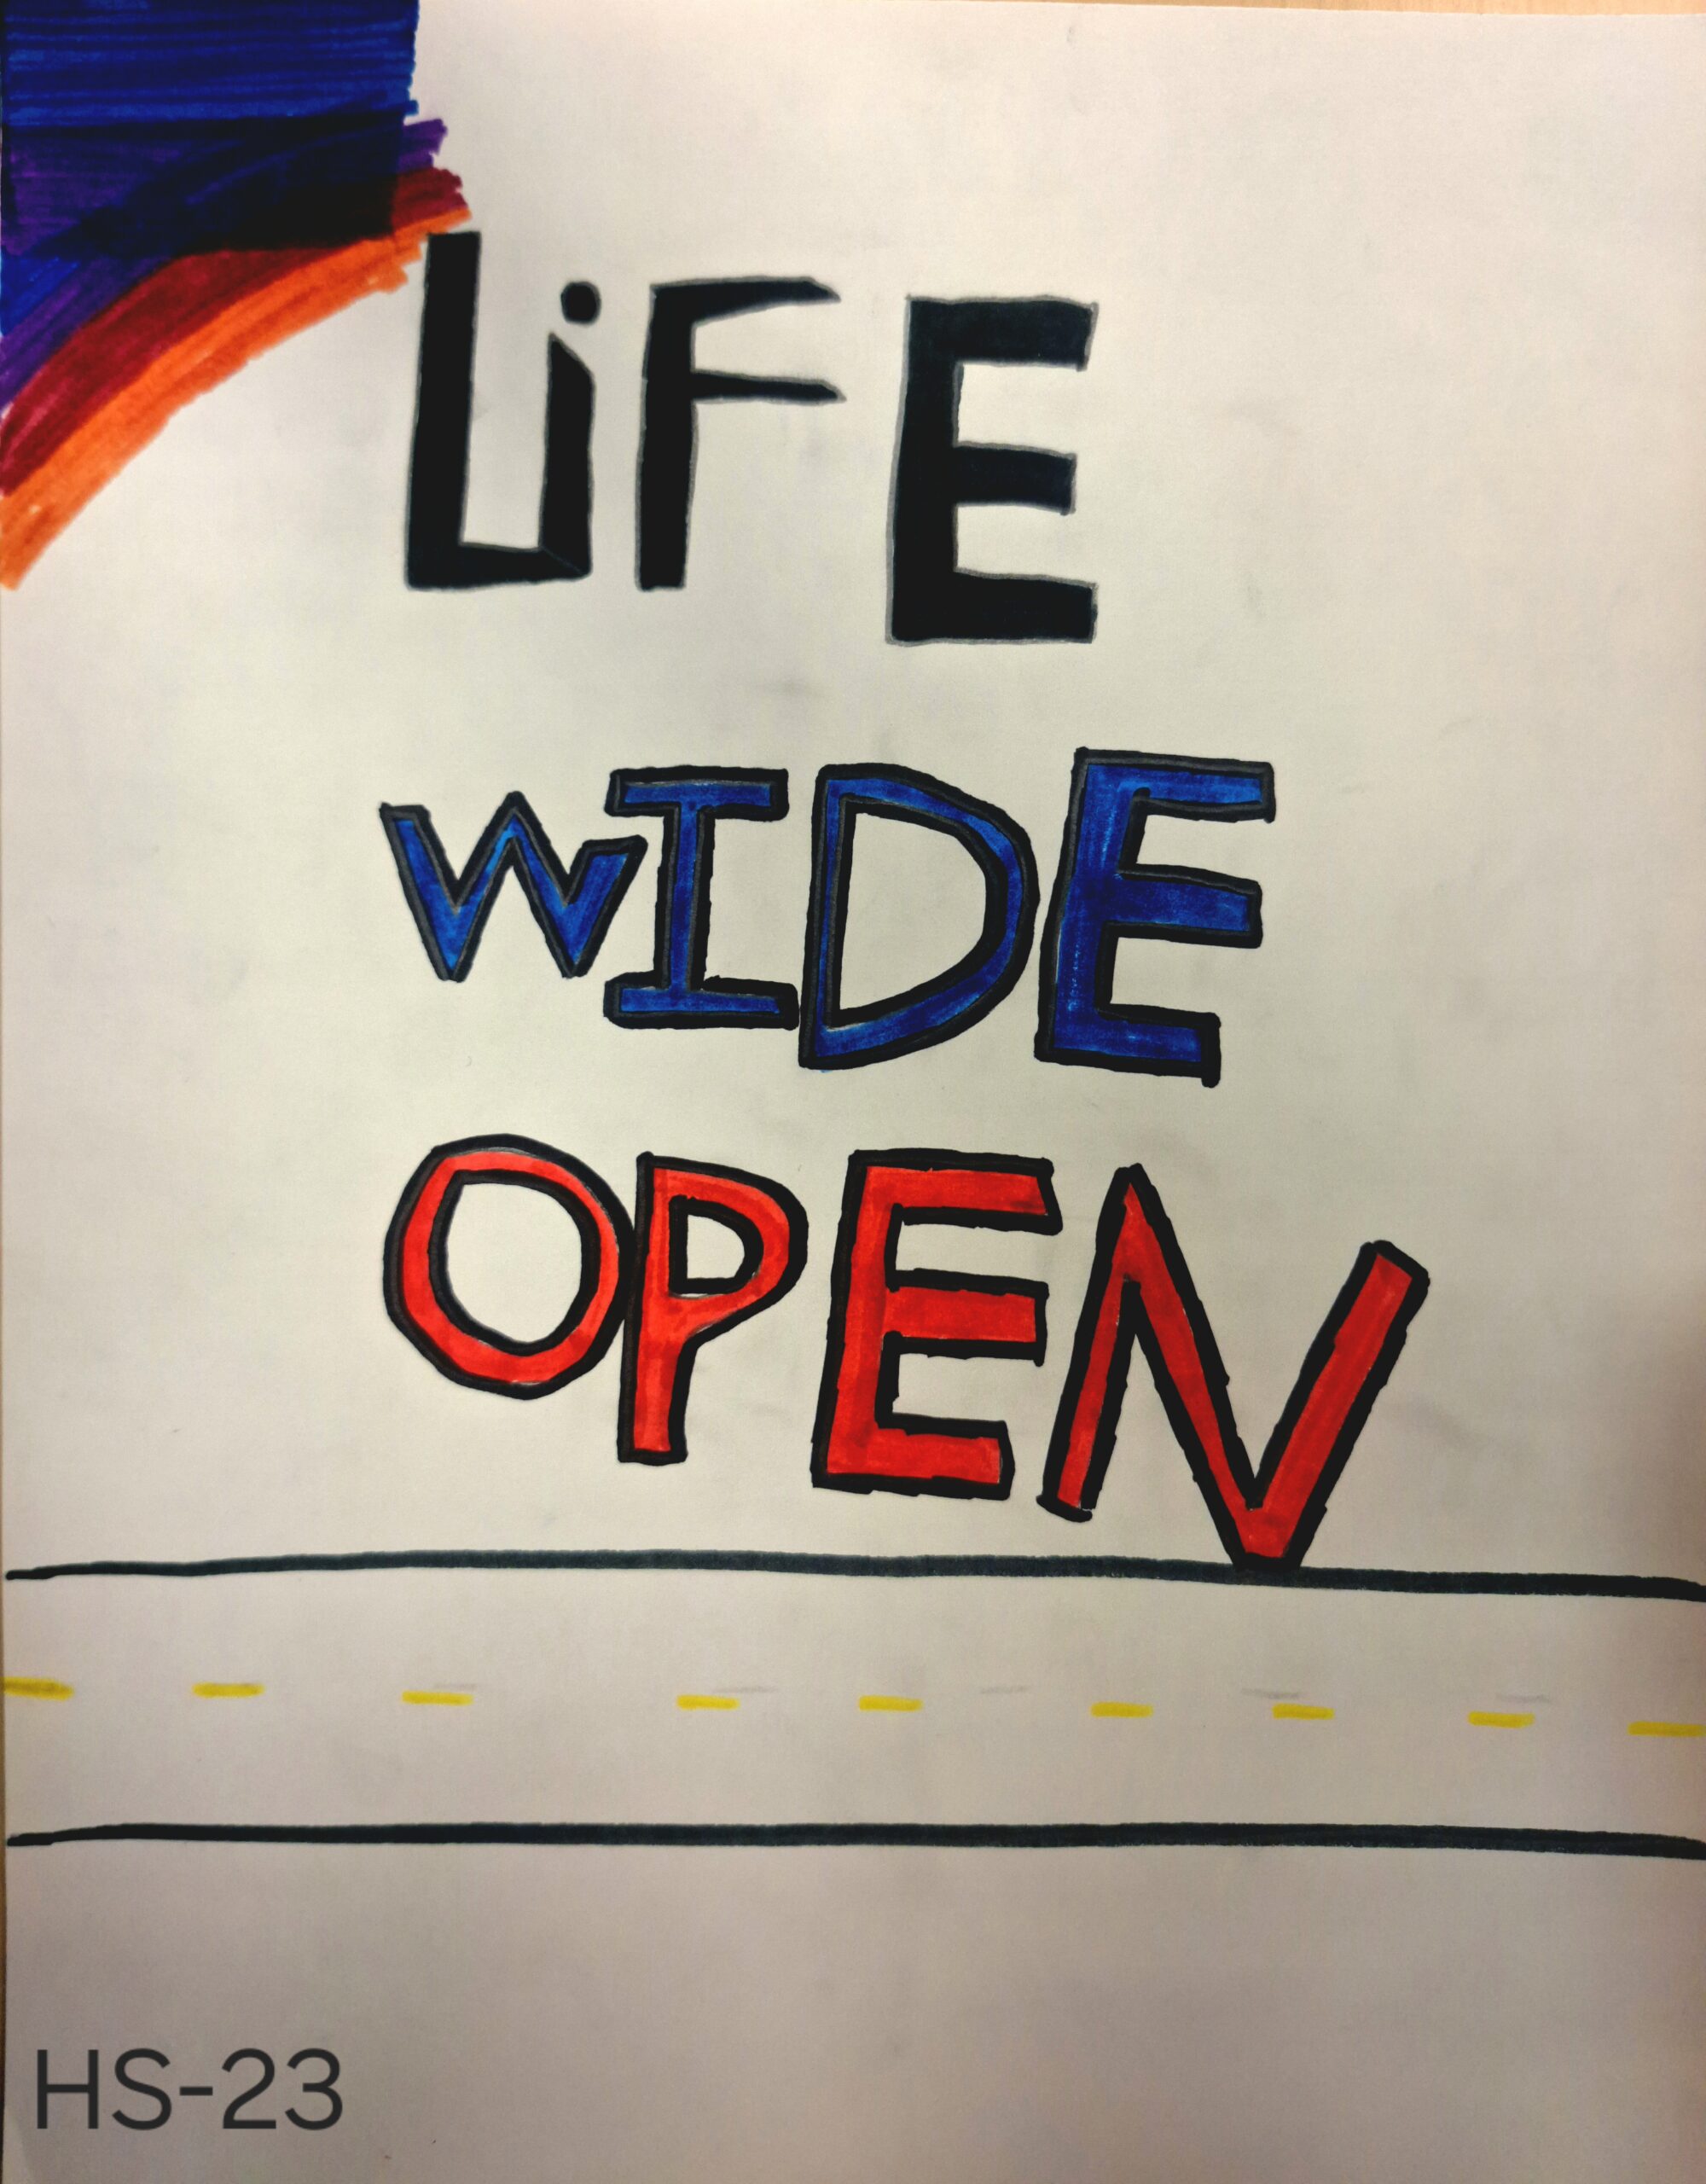 LiFE
WIDE
OPEN
HS-23